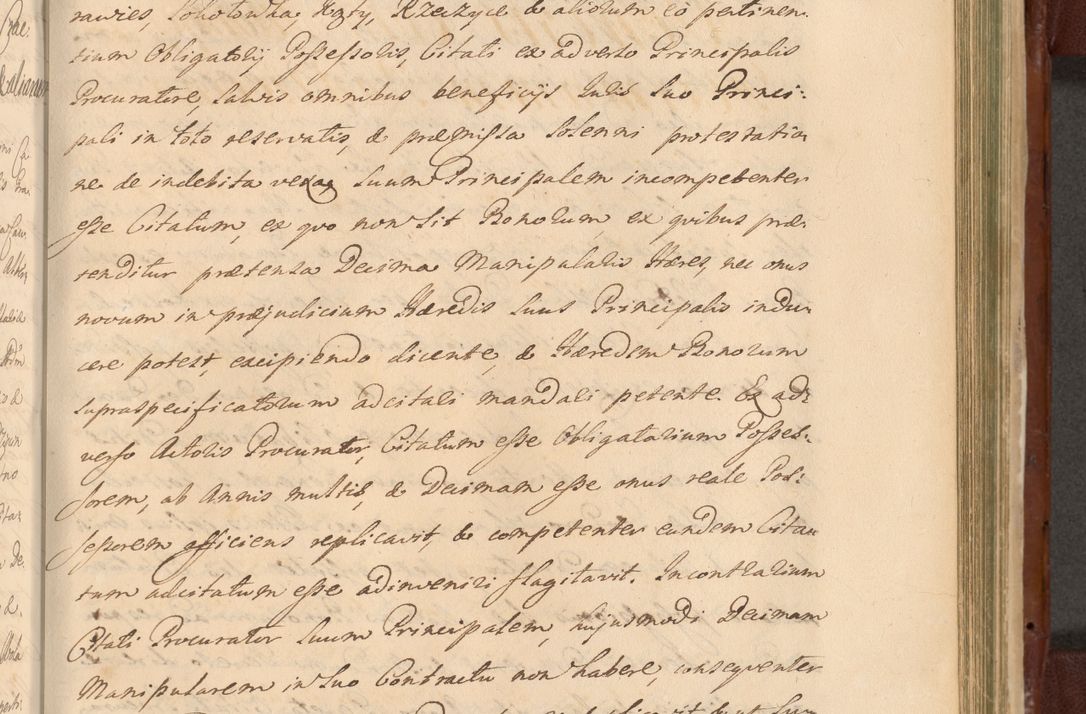 rawies, Sokołowka, Kąty, Rzeczyce & aliorum eo pertinen-
tium Obligatorij Possessoris, Citati ex adverso Principalis
Procuratore, salvis omnibus beneficijs Iuris suo Princi:
pali in toto reservatis, & præmissa solenni protestatio
ne de indebita vexa suum Principalem incompetenter
esse Citatum, ex quo non sit Bonorum, ex quibus præ:
tenditur prætensa Decima Manipularis Hæres, nec onus
novum in præjudicium Hæredis suus Principalis indu
cere potest, excipiendo dicente, & Hæredem Bonorum
supraspecificatorum adcitari mandari petente. Ex ad:
verso Actoris Procurator, Citatum esse Obligatarium Posses:
sorem, ab Annis multis, & Decimam esse onus reale Pos:
sessorem afficiens replicavit, & competenter eundem Cita
tum adcitatum esse adinveniri flagitavit. In contrarium
Citati Procurator suum Principalem, hujusmodi Decimam
Manipularem in suo Contractu non habere, consequenter